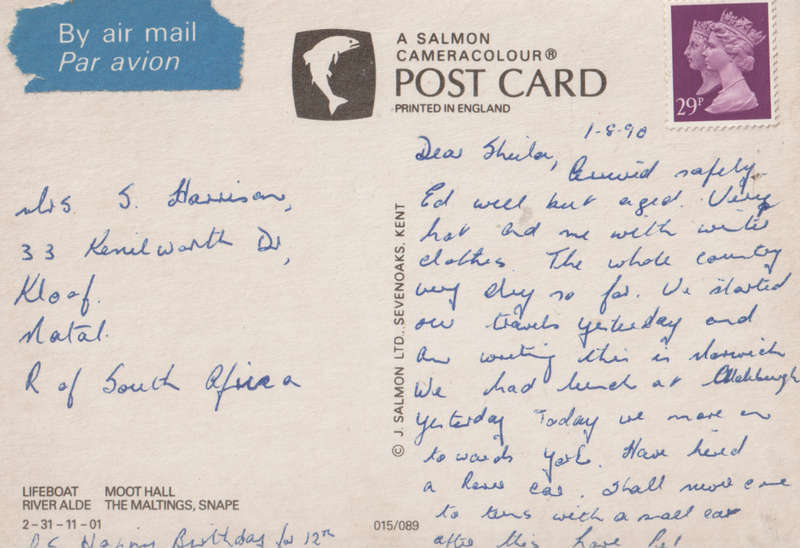 By air mail
Par avion
A SALMON
CAMERACOLOUR®
POST CARD
PRINTED IN ENGLAND
29P
Mrs S. Harrison,
33 Kenilworth Dr,
Kloof.
Natal.
R of South Africa
LIFEBOAT MOOT HALL
RIVER ALDE THE MALTINGS, SNAPE
2-31-11-01
P.S. Happy Birthday for 12th
© J. SALMON LTD., SEVENOAKS, KENT
015/089
1-8-90
Dear Sheila,
Arrived safely
Ed well but aged. Very
hot and me with winter
clothes. The whole country
very dry so far. We started
our travels yesterday and
am writing this in Norwich
We had lunch at Aldeburgh
yesterday Today we move on
towards York. Have hired
a Rover car. Shall never come
to terms with a small car
after this have